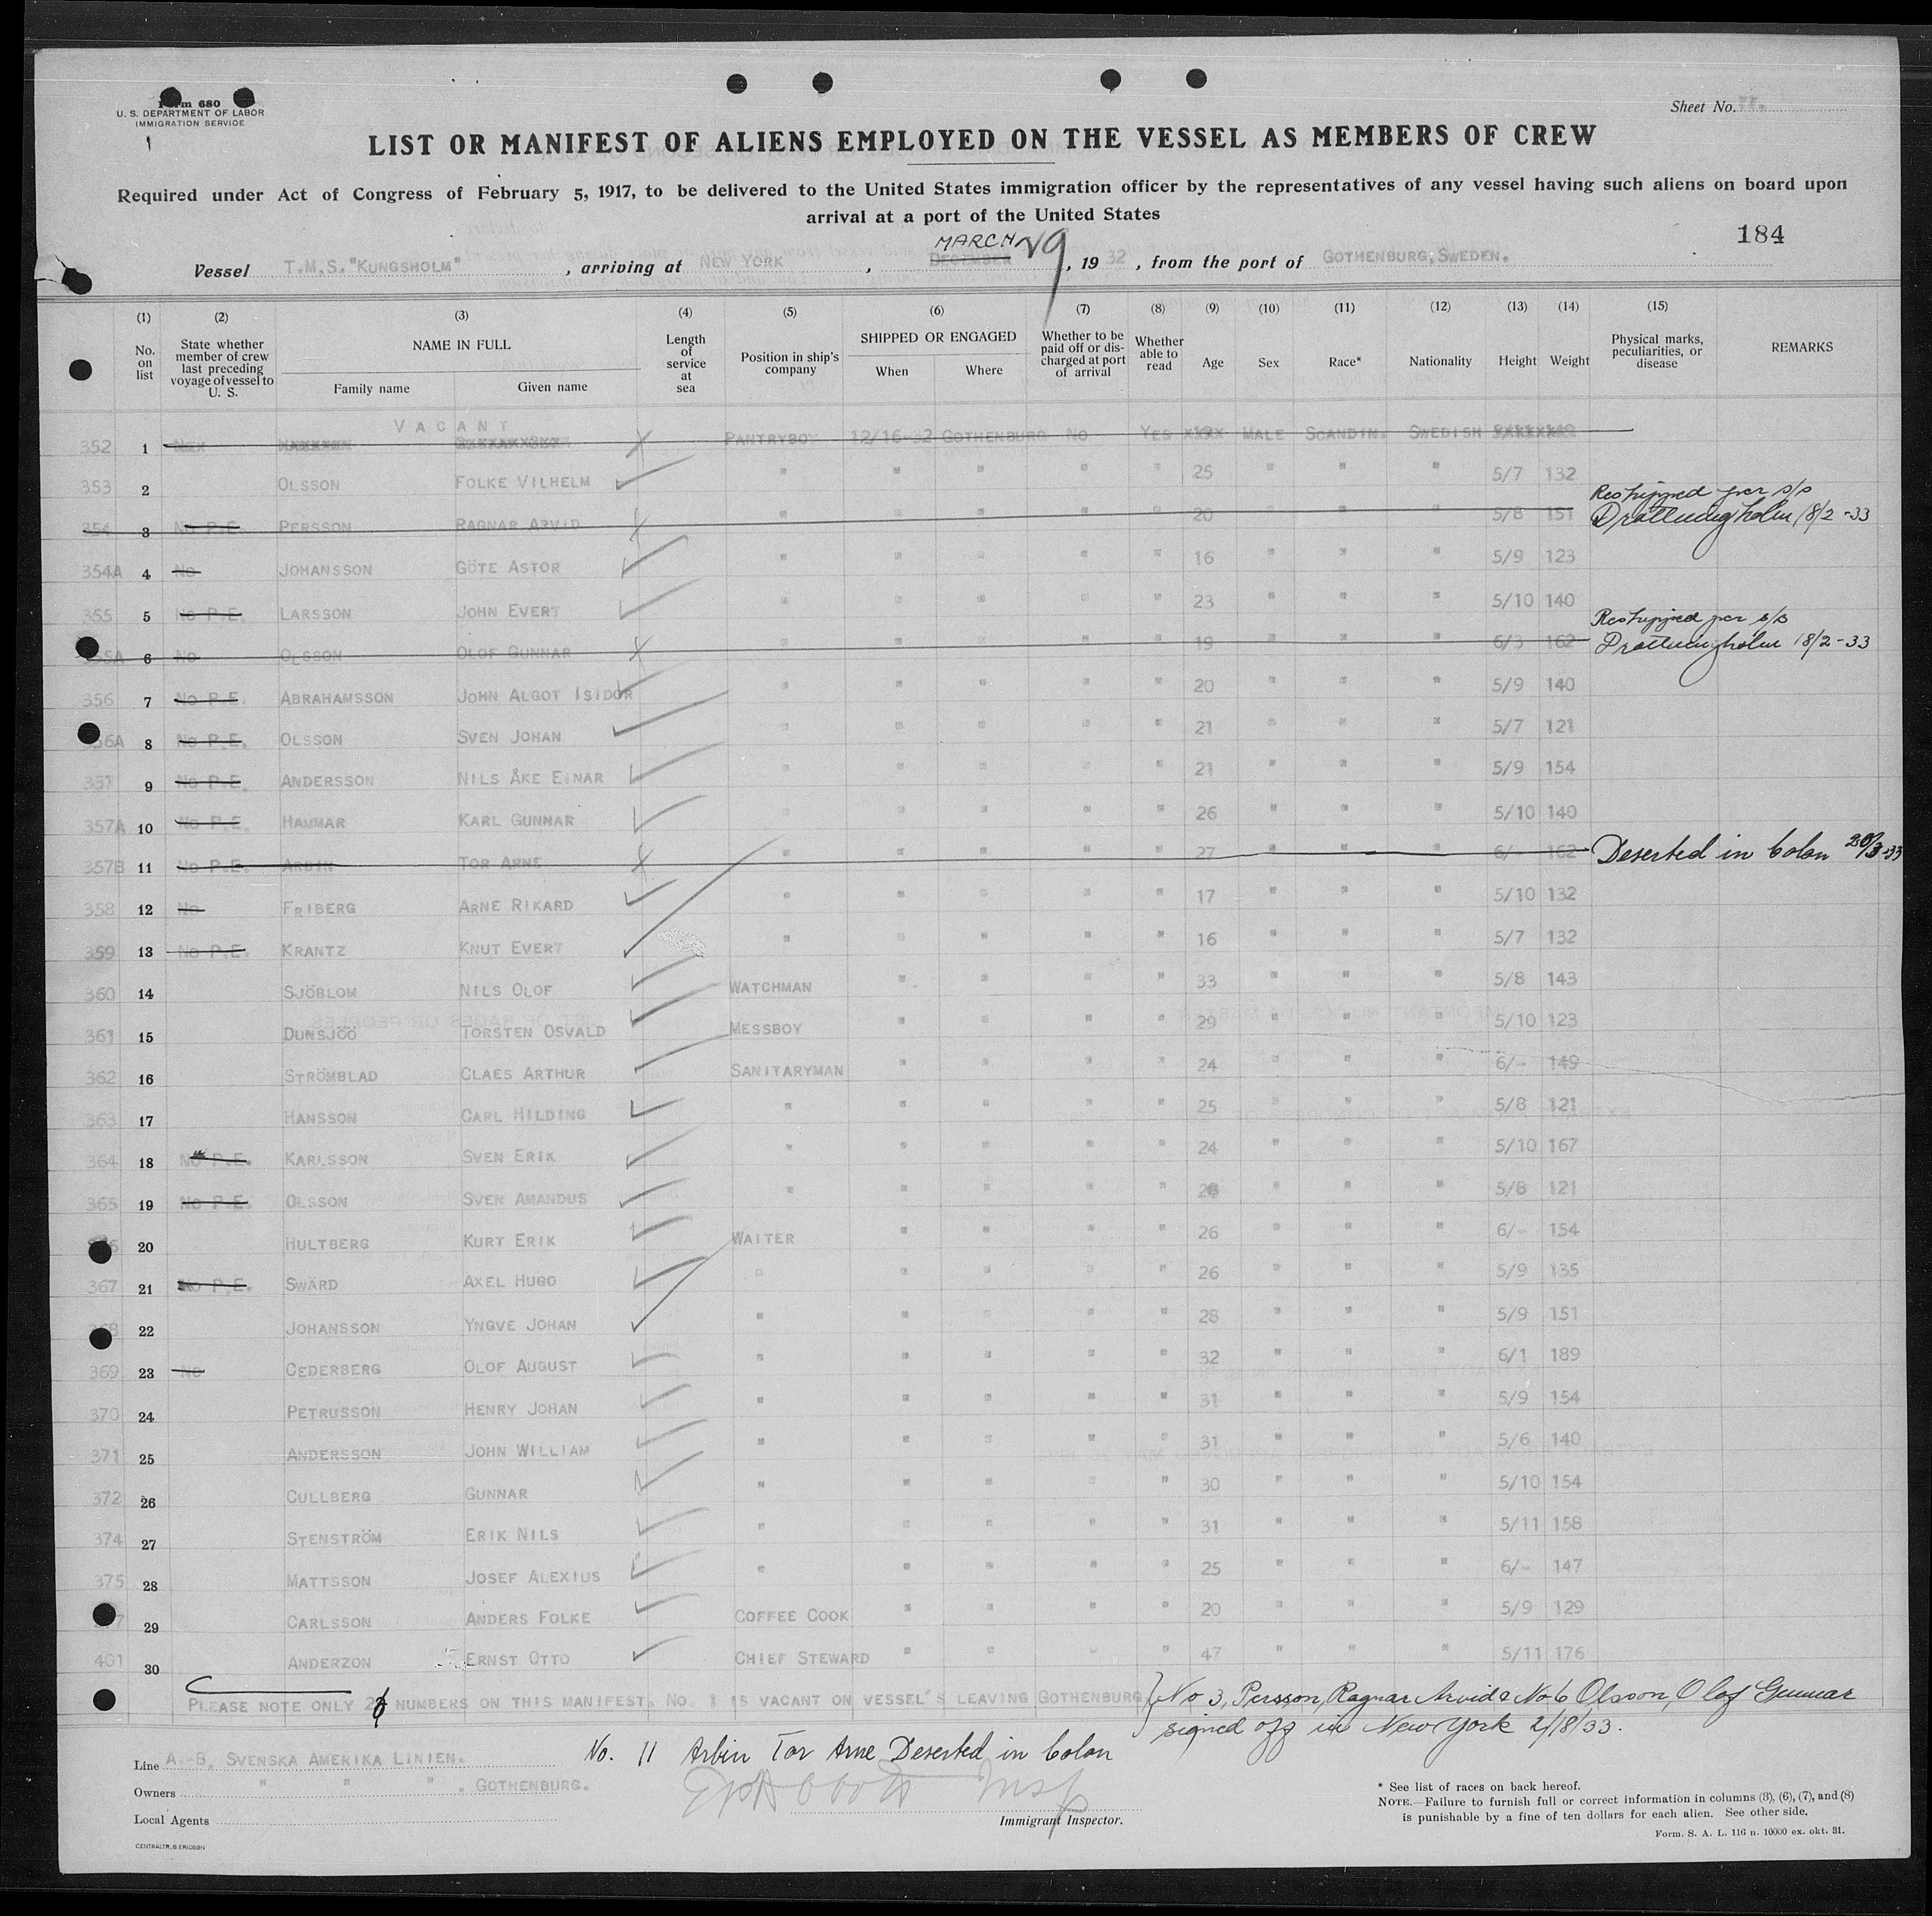 Form 680
U. S. DEPARTMENT OF LABOR
IMMIGRATION SERVICE
Sheet No.
LIST OR MANIFEST OF ALIENS EMPLOYED ON THE VESSEL AS MEMBERS OF CREW
Required under Act of Congress of February 5, 1917, to be delivered to the United States immigration officer by the representatives of any vessel having such aliens on board upon
arrival at a port of the United States
184
MARCH 29
Vessel T.M.S. "KUNGSHOLM", arriving at NEW YORK, DECEMBER, 1932, from the port of GOTHENBURG, SWEDEN.
(1) (2) (3) (4) (5) (6) (7) (8) (9) (10) (11) (12) (13) (14) (15)
No. on list State whether member of crew last preceding voyage of vessel to U. S. NAME IN FULL Family name Given name Length of service at sea Position in ship's company SHIPPED OR ENGAGED When Where Whether to be paid off or discharged at port of arrival Whether able to read Age Sex Race* Nationality Height Weight Physical marks, peculiarities, or disease REMARKS
VACANT
352 1 PANTRYBOY 12/16-32 GOTHENBURG NO YES MALE SCANDIN. SWEDISH
353 2 OLSSON FOLKE VILHELM " " " " " 25 " " " 5/7 132
Reshipped per s/s
354 3 NO P.E. PERSSON RAGNAR ARVID " " " " " 20 " " " 5/8 151 Drottningholm 18/2-33
354A 4 NO JOHANSSON GÖTE ASTOR " " " " " 16 " " " 5/9 123
355 5 NO P.E. LARSSON JOHN EVERT " " " " " 23 " " " 5/10 140
Reshipped per s/s
355A 6 NO OLSSON OLOF GUNNAR " " " " " 19 " " " 6/3 162 Drottningholm 18/2-33
356 7 NO P.E. ABRAHAMSSON JOHN ALGOT ISIDOR " " " " " 20 " " " 5/9 140
356A 8 NO P.E. OLSSON SVEN JOHAN " " " " " 21 " " " 5/7 121
357 9 NO P.E. ANDERSSON NILS ÅKE EINAR " " " " " 21 " " " 5/9 154
357A 10 NO P.E. HAMMAR KARL GUNNAR " " " " " 26 " " " 5/10 140
357B 11 NO P.E. ARBIN TOR ARNE " " " " " 27 " " " 6/- 162 Deserted in Colon 20/3-33
358 12 NO FRIBERG ARNE RIKARD " " " " " 17 " " " 5/10 132
359 13 NO P.E. KRANTZ KNUT EVERT " " " " " 16 " " " 5/7 132
360 14 SJÖBLOM NILS OLOF WATCHMAN " " " " 33 " " " 5/8 143
361 15 DUNSJÖÖ TORSTEN OSVALD MESSBOY " " " " 29 " " " 5/10 123
362 16 STRÖMBLAD CLAES ARTHUR SANITARYMAN " " " " 24 " " " 6/- 149
363 17 HANSSON CARL HILDING " " " " " 25 " " " 5/8 121
364 18 NO P.E. KARLSSON SVEN ERIK " " " " " 24 " " " 5/10 167
365 19 NO P.E. OLSSON SVEN AMANDUS " " " " " " " " 5/8 121
20 HULTBERG KURT ERIK WAITER " " " " 26 " " " 6/- 154
367 21 NO P.E. SWÄRD AXEL HUGO " " " " " 26 " " " 5/9 135
368 22 JOHANSSON YNGVE JOHAN " " " " " 28 " " " 5/9 151
369 23 NO CEDERBERG OLOF AUGUST " " " " " 32 " " " 6/1 189
370 24 PETRUSSON HENRY JOHAN " " " " " 31 " " " 5/9 154
371 25 ANDERSSON JOHN WILLIAM " " " " " 31 " " " 5/6 140
372 26 CULLBERG GUNNAR " " " " " 30 " " " 5/10 154
374 27 STENSTRÖM ERIK NILS " " " " " 31 " " " 5/11 158
375 28 MATTSSON JOSEF ALEXIUS " " " " " 25 " " " 6/- 147
29 CARLSSON ANDERS FOLKE COFFEE COOK " " " " 20 " " " 5/9 129
401 30 ANDERZON ERNST OTTO CHIEF STEWARD " " " " 47 " " " 5/11 176
PLEASE NOTE ONLY NUMBERS ON THIS MANIFEST, NO. 1 IS VACANT ON VESSEL'S LEAVING GOTHENBURG
No 3, Persson, Ragnar Arvid & No 6 Olsson, Olof Gunnar
signed off in New York 2/18/33.
No. 11 Arbin Tor Arne Deserted in Colon
Line A.-B. SVENSKA AMERIKA LINIEN.
Owners " " " . GOTHENBURG.
Local Agents
Insp
Immigrant Inspector.
* See list of races on back hereof.
NOTE.—Failure to furnish full or correct information in columns (3), (6), (7), and (8)
is punishable by a fine of ten dollars for each alien. See other side.
Form. S. A. L. 116 n. 10000 ex. okt. 31.
CENTRALTR. G. ERICSON